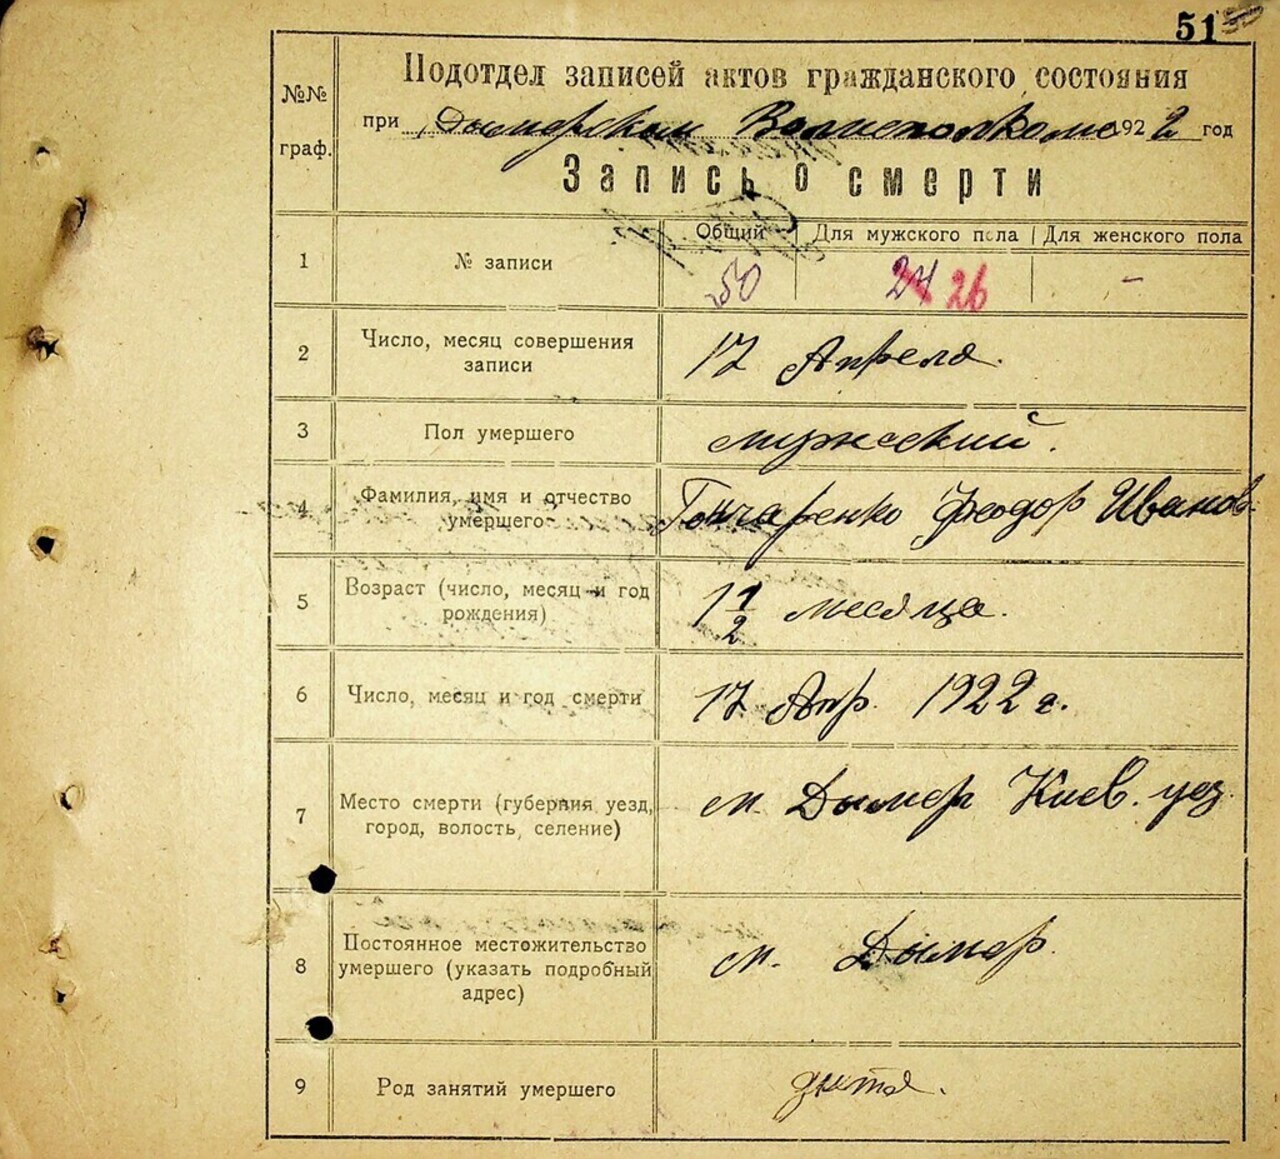 51
№№ граф.
Подотдел записей актов гражданского состояния
при Дымерском Волисполкоме 1922 год
Запись о смерти
Общий Для мужского пола Для женского пола
1 № записи 50 24 26 –
2 Число, месяц совершения записи 17 Апреля.
3 Пол умершего мужеский.
4 Фамилия, имя и отчество умершего Гончаренко Феодор Иванов.
5 Возраст (число, месяц и год рождения) 1 1/2 месяца.
6 Число, месяц и год смерти 17 Апр. 1922 г.
7 Место смерти (губерния, уезд, город, волость, селение) м. Дымер Киев. уез.
8 Постоянное местожительство умершего (указать подробный адрес) м. Дымер.
9 Род занятий умершего дитя.